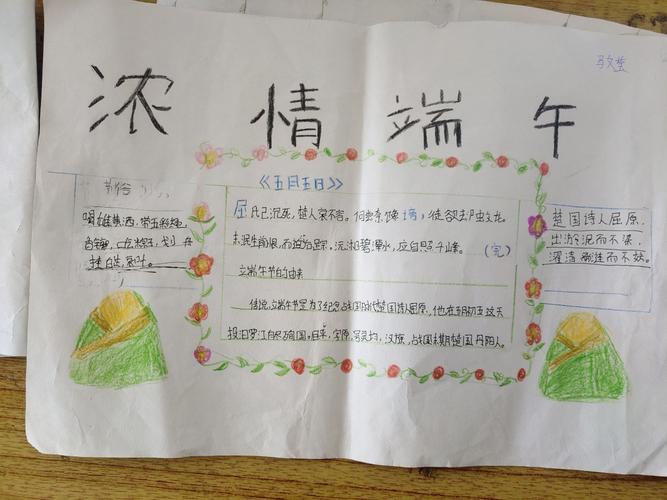 浓情端午
《五月五日》
屈氏已沉死,楚人哀不容。何尝奈馋谤,徒欲却蛟龙。
未泯生前恨,而追没后踪。沅湘碧潭水,应自照千峰。(完)
端午节的由来
传说,端午节是为了纪念战国时代楚国诗人屈原,他在五月初五这天
投汨罗江自尽殉国。屈平,字原,汉族,战国末期楚国丹阳人。
喝雄黄酒,带五彩绳
吃粽子,划
挂
楚国诗人屈原,
出淤泥而不染,
濯清涟而不妖。